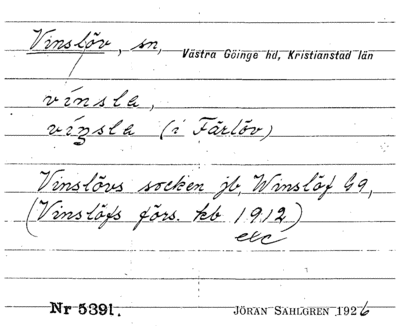 Vinslöv, sn, Västra Göinge hd, Kristianstad län
vínsla,
víṇsla (i Färlöv)
Vinslövs socken jb, Winslöf 69,
(Vinslöfs förs. kb 1912)
etc
Nr 5391. JÖRAN SAHLGREN 1926